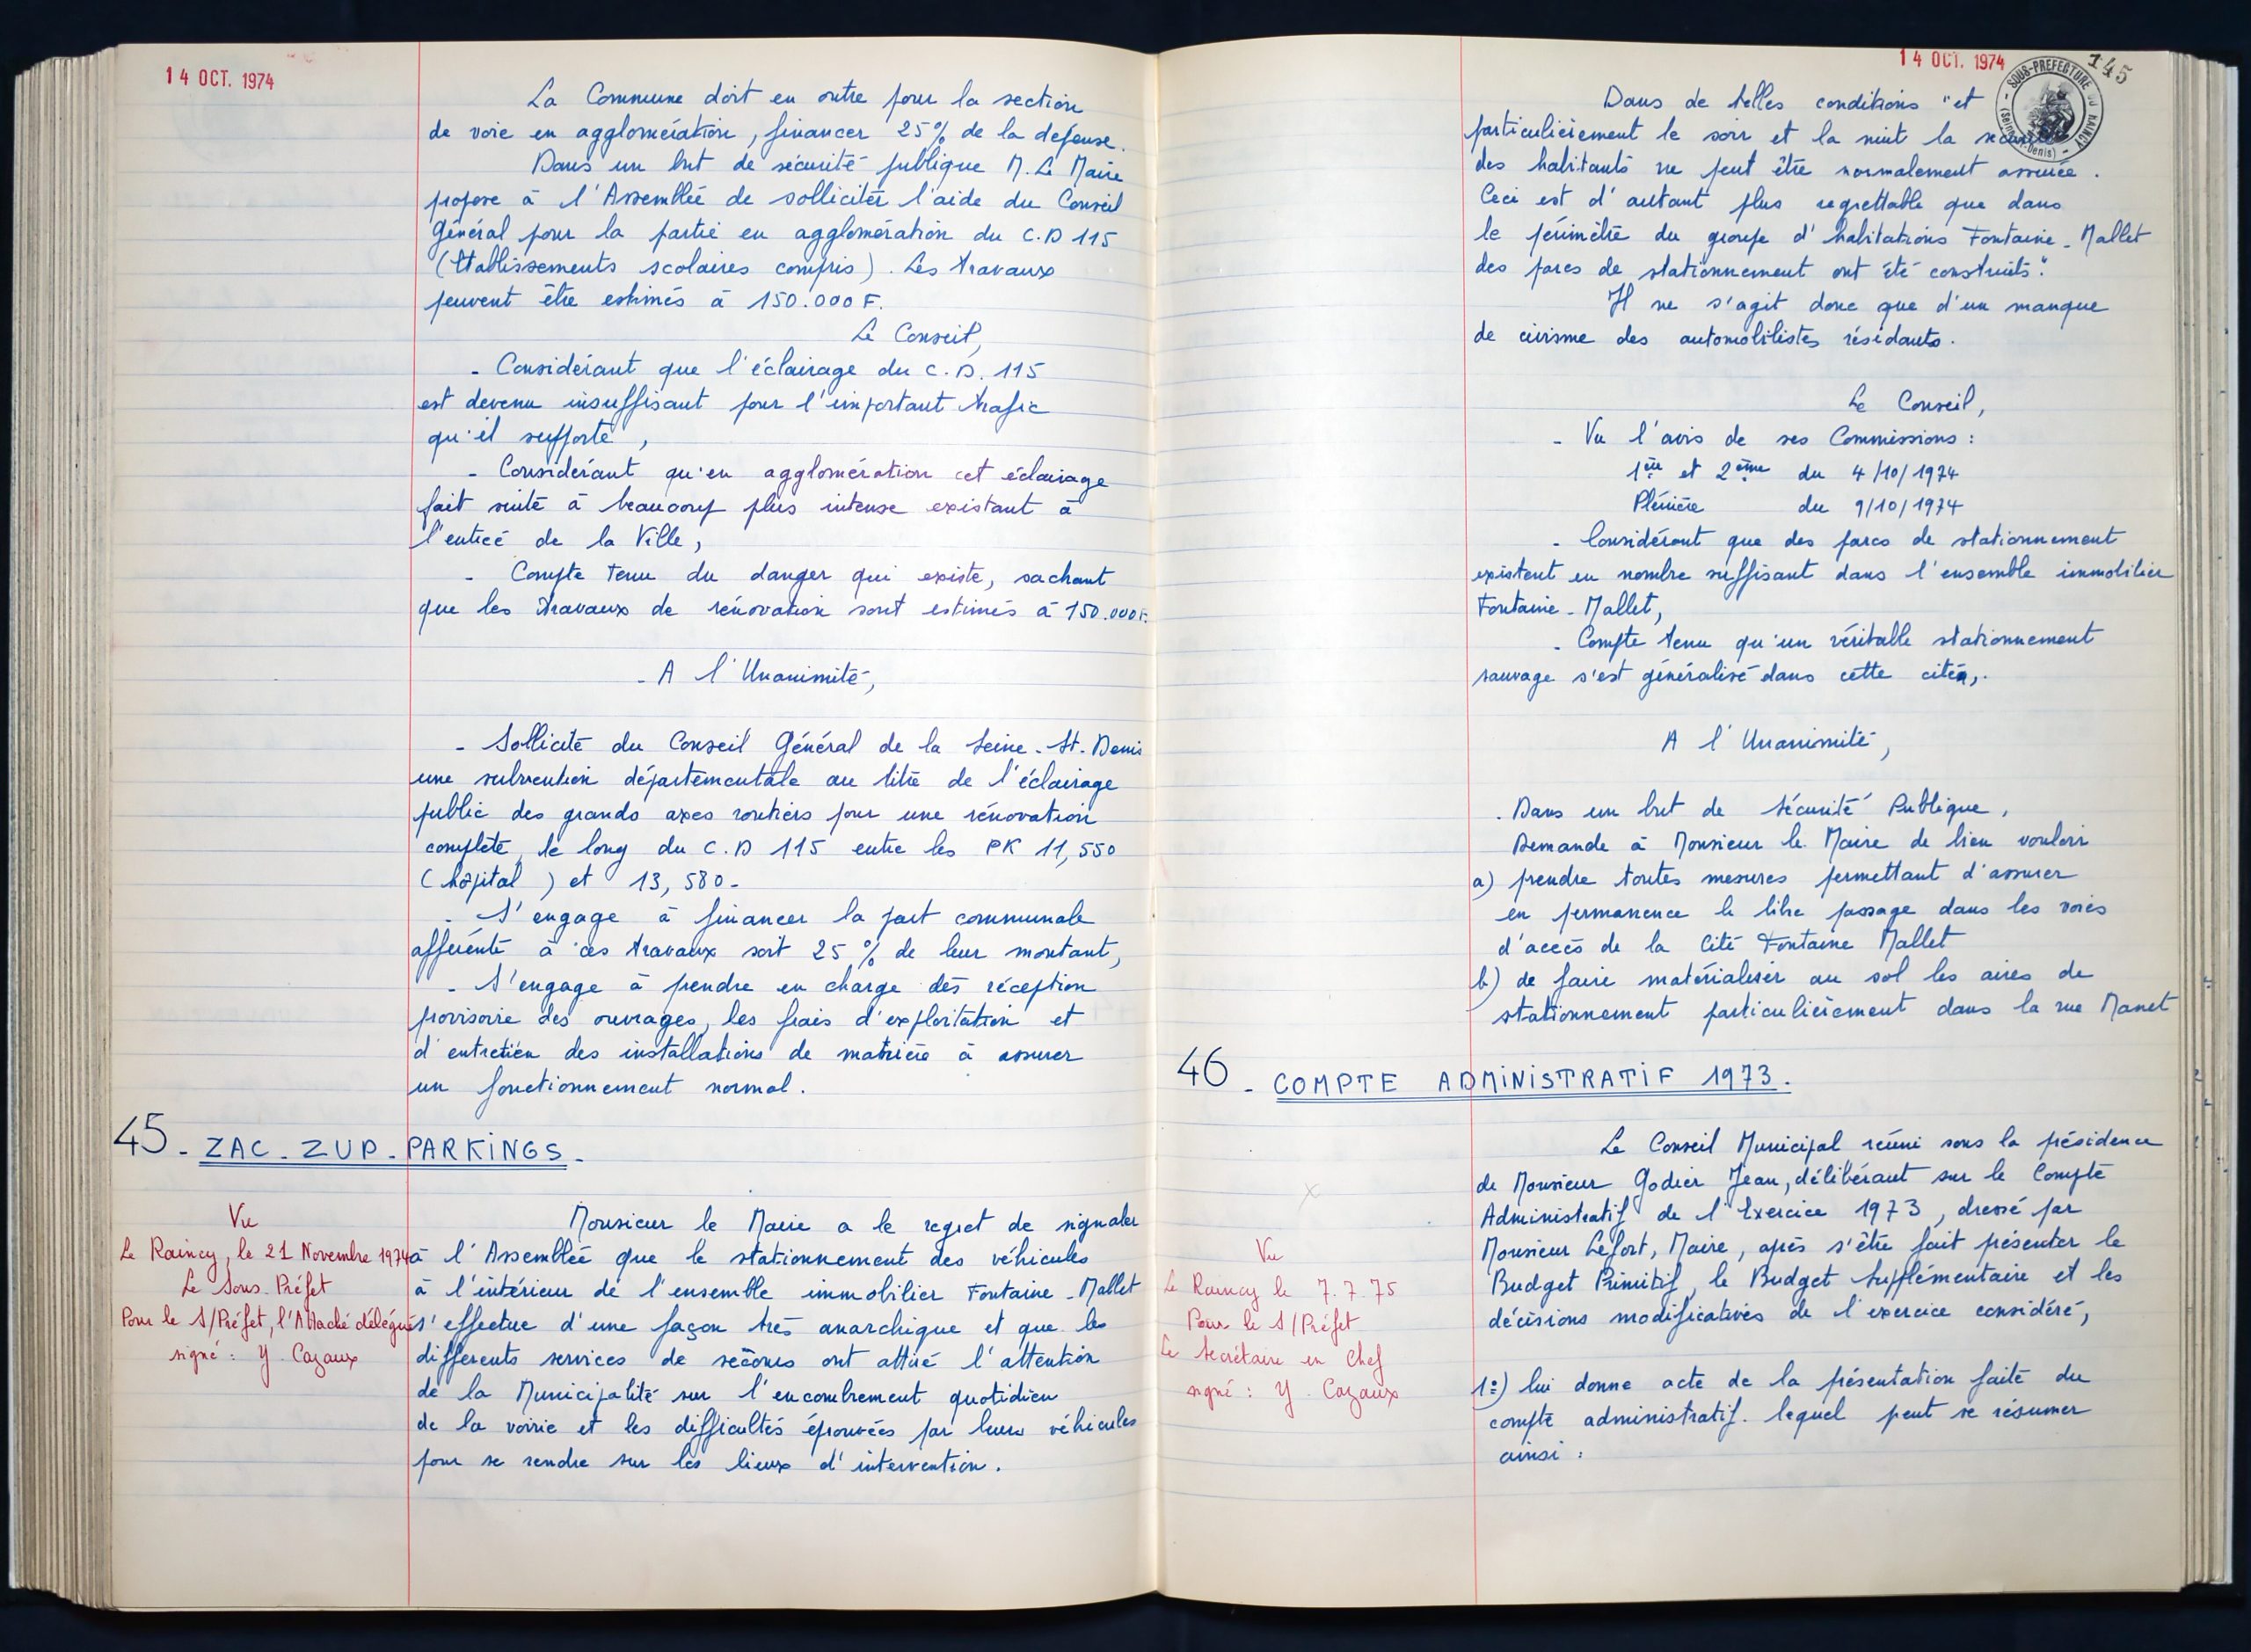 14 OCT. 1974
La Commune doit en outre pour la section
de voie en agglomération, financer 25% de la dépense.
Dans un but de sécurité publique M. Le Maire
propose à l'Assemblée de solliciter l'aide du Conseil
Général pour la partie en agglomération du C.D 115
(Etablissements scolaires compris). Les travaux
peuvent être estimés à 150.000 F.
Le Conseil,
- Considérant que l'éclairage du C.D. 115
est devenu insuffisant pour l'important trafic
qu'il supporte,
- Considérant qu'en agglomération cet éclairage
fait suite à beaucoup plus intense existant à
l'entrée de la Ville,
- Compte tenu du danger qui existe, sachant
que les travaux de rénovation sont estimés à 150.000F.
- A l'Unanimité,
- Sollicite du Conseil Général de la Seine-St-Denis
une subvention départementale au titre de l'éclairage
public des grands axes routiers pour une rénovation
complète, le long du C.D 115 entre les PK 11,550
(hôpital) et 13,580-
- S'engage à financer la part communale
afférente à ces travaux soit 25% de leur montant,
- S'engage à prendre en charge dès réception
provisoire des ouvrages, les frais d'exploitation et
d'entretien des installations de matière à assurer
un fonctionnement normal.
45 - ZAC - ZUP - PARKINGS -
Vu
Le Raincy, le 21 Novembre 1974
Le Sous-Préfet
Pour le S/Préfet, l'Attaché délégué
signé : Y. Cazaux
Monsieur le Maire a le regret de signaler
à l'Assemblée que le stationnement des véhicules
à l'intérieur de l'ensemble immobilier Fontaine-Mallet
s'effectue d'une façon très anarchique et que les
différents services de secours ont attiré l'attention
de la Municipalité sur l'encombrement quotidien
de la voirie et les difficultés éprouvées par leurs véhicules
pour se rendre sur les lieux d'intervention.
14 OCT. 1974
145
SOUS-PREFECTURE DU RAINCY
(Seine-St-Denis)
Dans de telles conditions "et
particulièrement le soir et la nuit la sécurité
des habitants ne peut être normalement assurée.
Ceci est d'autant plus regrettable que dans
le périmètre du groupe d'habitations Fontaine-Mallet
des parcs de stationnement ont été construits."
Il ne s'agit donc que d'un manque
de civisme des automobilistes résidants.
Le Conseil,
- Vu l'avis de ses Commissions :
1ère et 2ème du 4/10/1974
Plénière du 9/10/1974
- Considérant que des parcs de stationnement
existent en nombre suffisant dans l'ensemble immobilier
Fontaine-Mallet,
- Compte tenu qu'un véritable stationnement
sauvage s'est généralisé dans cette cité,.
A l'Unanimité,
- Dans un but de Sécurité Publique,
Demande à Monsieur le Maire de bien vouloir
a) prendre toutes mesures permettant d'assurer
en permanence le libre passage dans les voies
d'accès de la Cité Fontaine Mallet
b) de faire matérialiser au sol les aires de
stationnement particulièrement dans la rue Manet
46 - COMPTE ADMINISTRATIF 1973.
Le Conseil Municipal réuni sous la présidence
de Monsieur Godier Jean, délibérant sur le Compte
Administratif de l'Exercice 1973, dressé par
Monsieur Lefort, Maire, après s'être fait présenter le
Budget Primitif, le Budget Supplémentaire et les
décisions modificatives de l'exercice considéré,
Vu
Le Raincy le 7.7.75
Pour le S/Préfet
Le Secrétaire en Chef
signé : Y. Cazaux
1°) lui donne acte de la présentation faite du
compte administratif. lequel peut se résumer
ainsi :